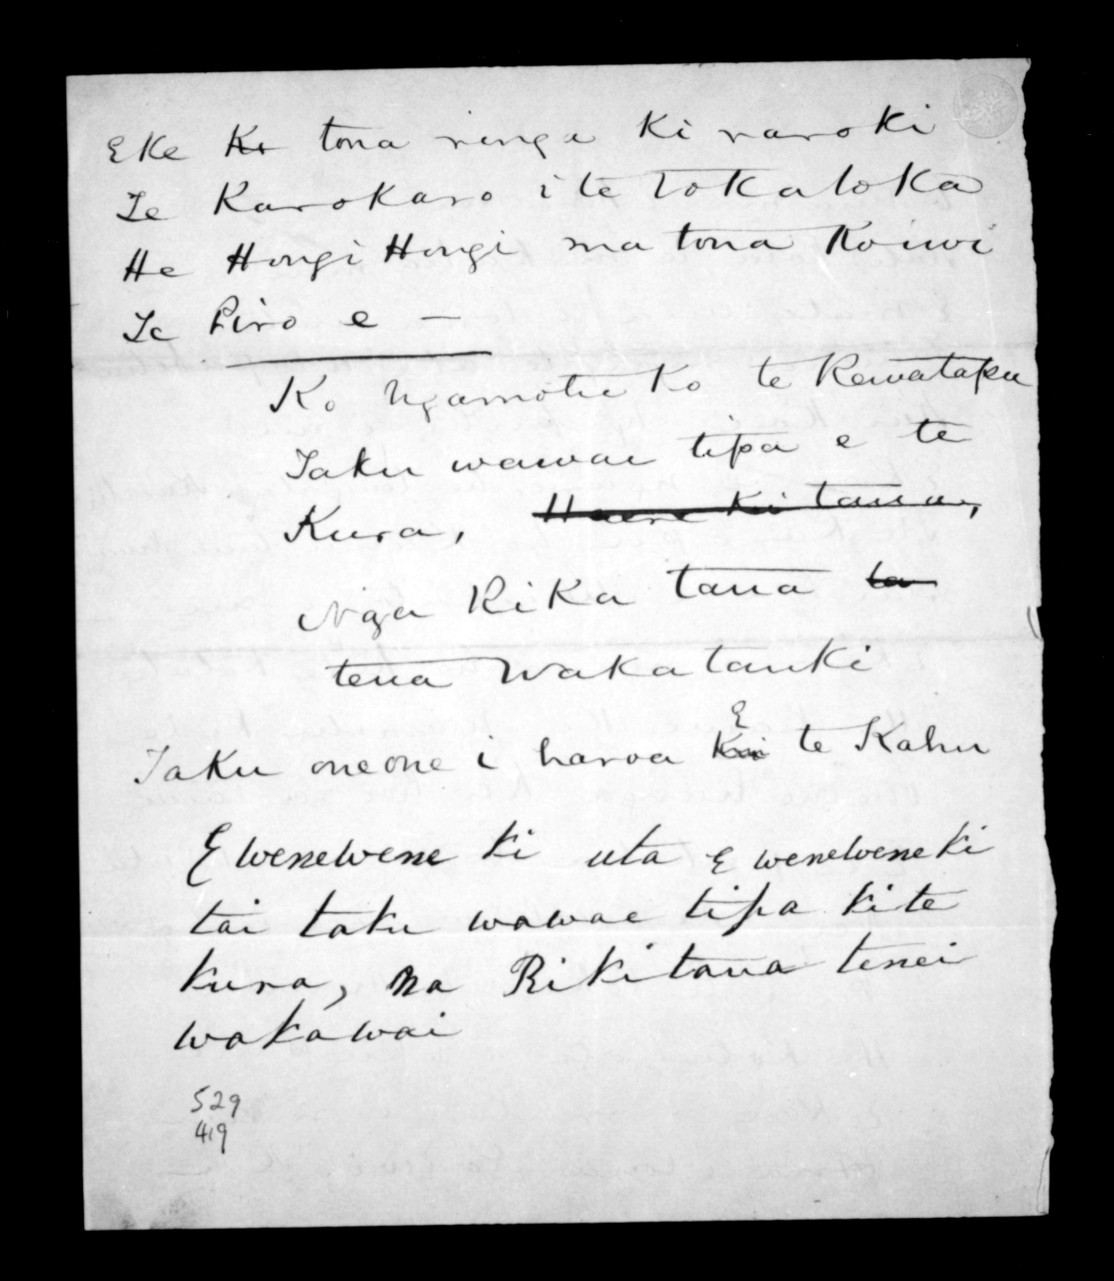 Eke Ko tona ringa Ki raroki
Te Karokaro i te Tokatoka
He Hongi Hongi ma tona Koiwi
Te Piro e —
Ko Ngamotu Ko te Kewatapu
Taku wawae tipa e te
Kura, Haere ki taua,
Nga RiKa taua ta
tena WaKatauKi
E
TaKu oneone i haroa Kai te Kahu
E wenewene ki uta E wenewene ki
tai taku wawae tipa ki te
kura, na Rikitaua tenei
wakawai
529
419